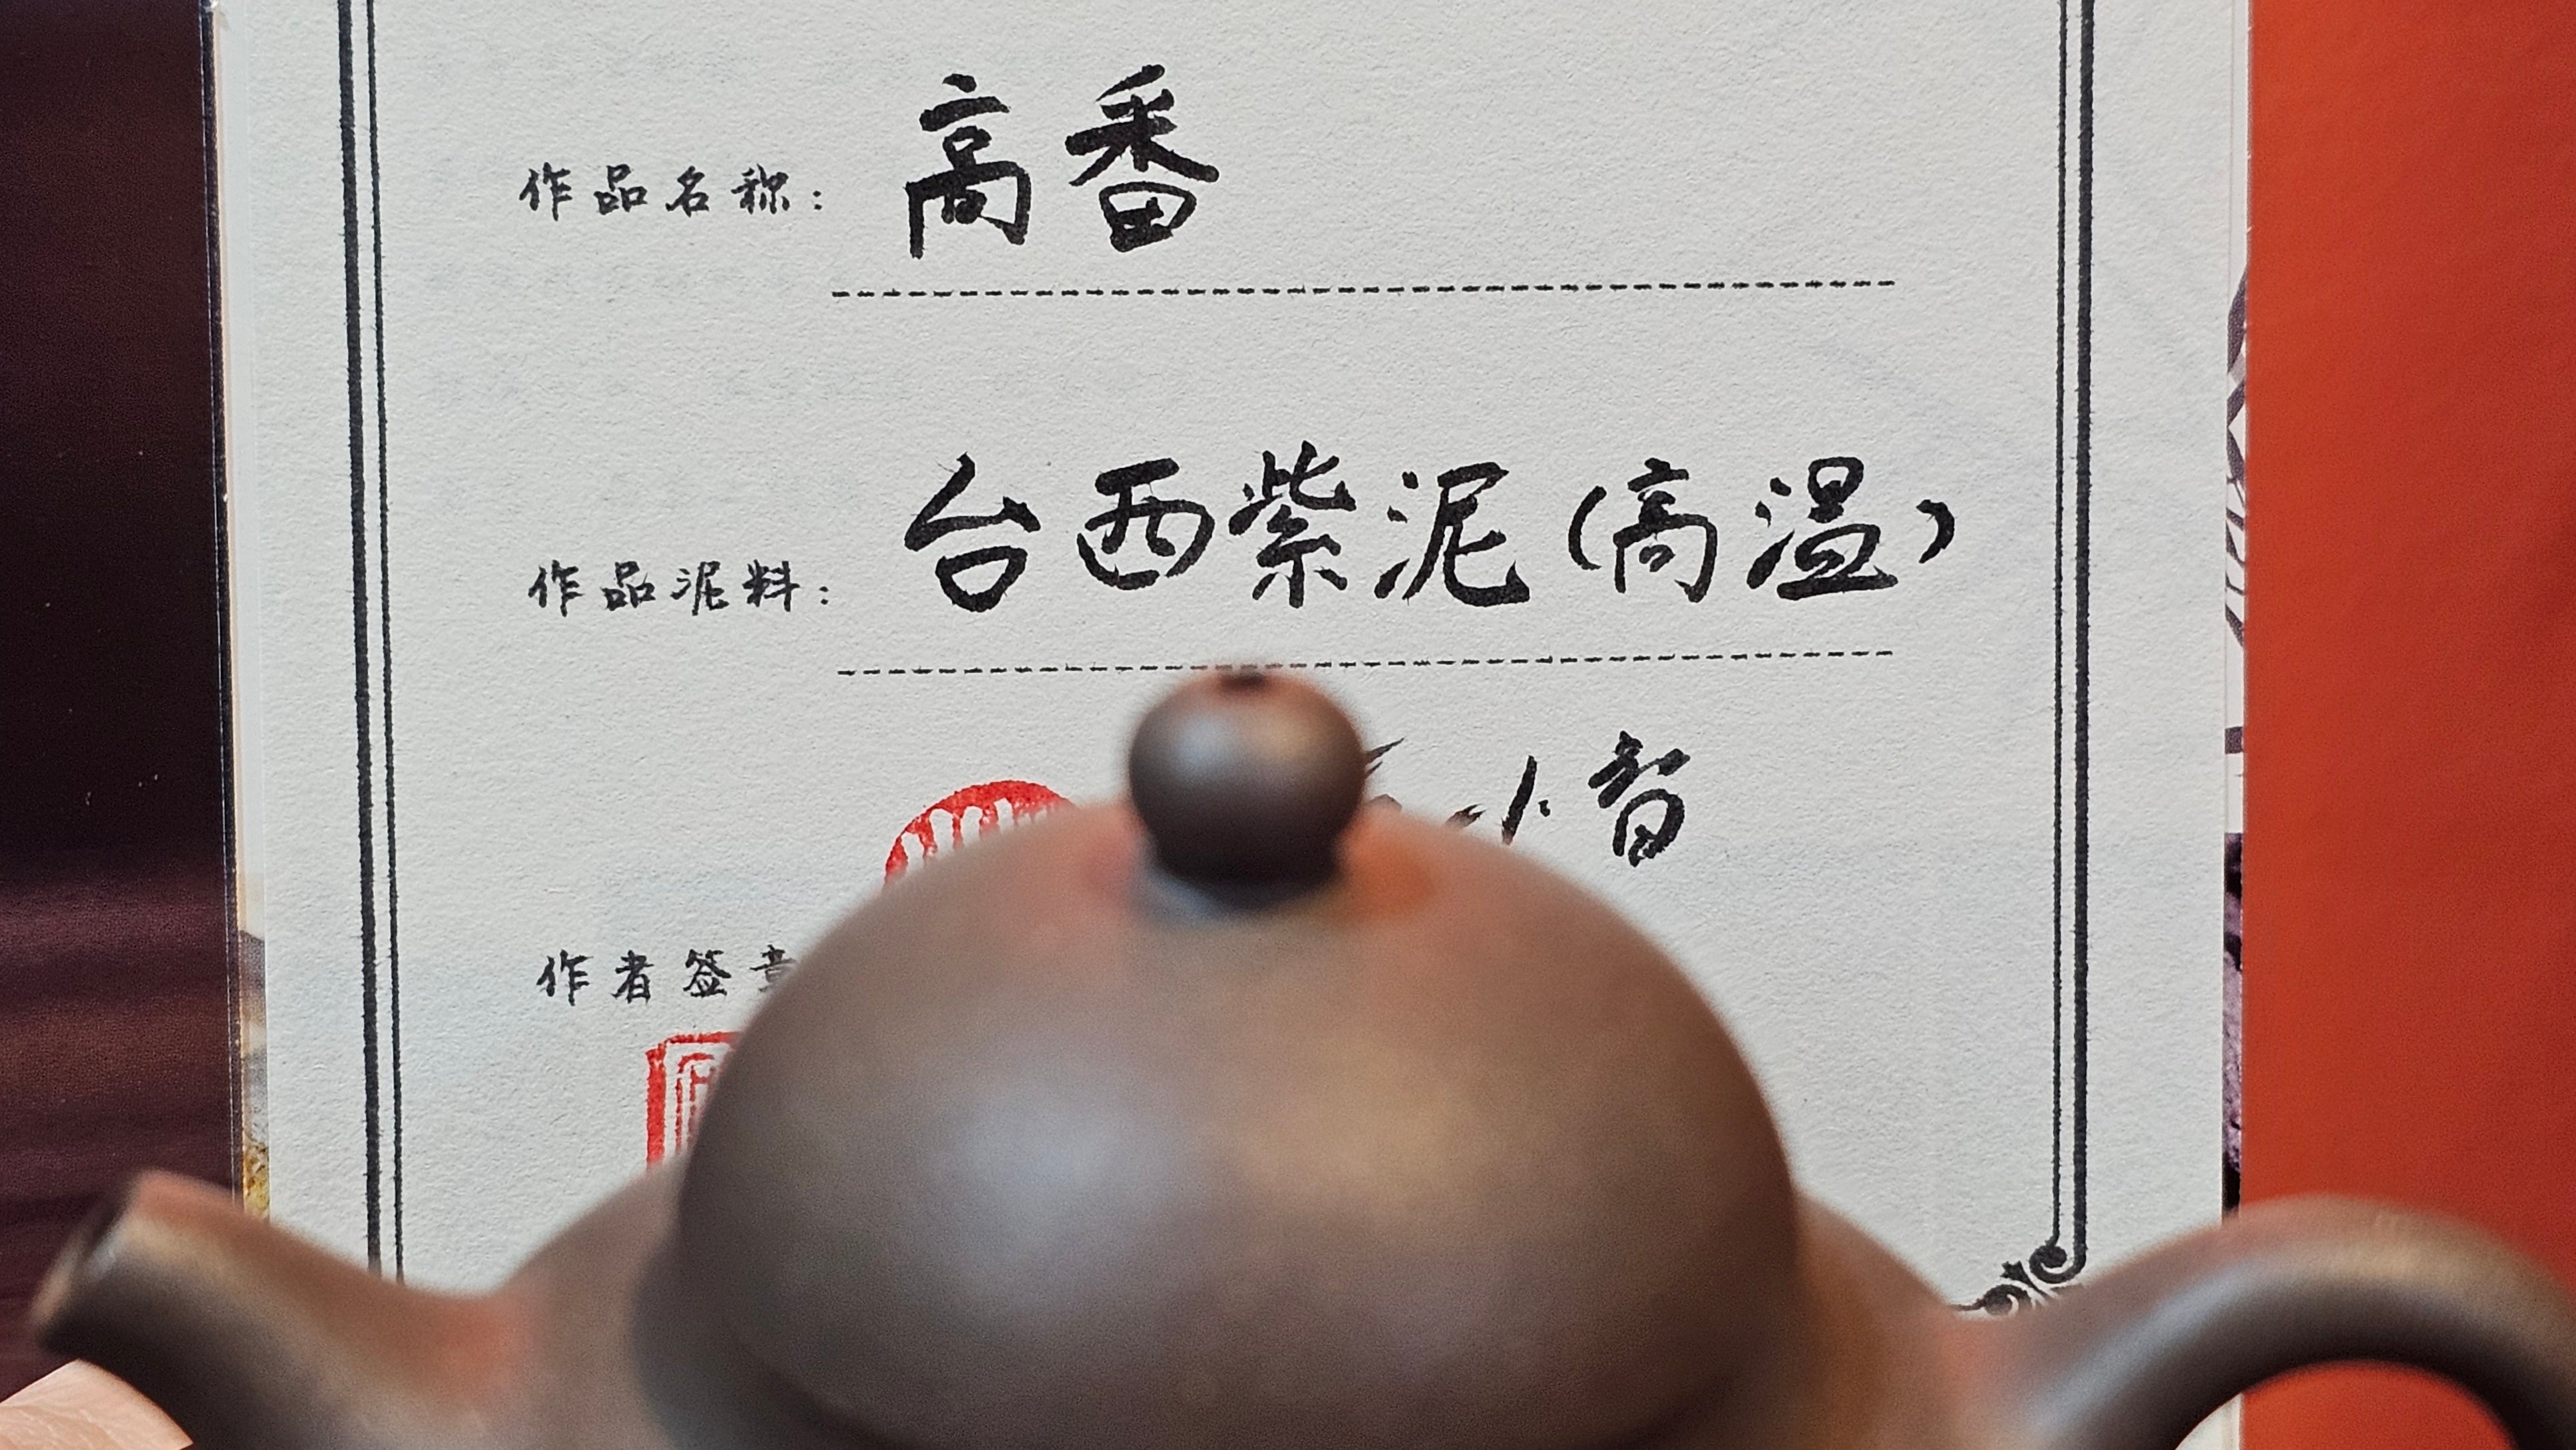 作品名称: 高番
作品泥料: 台西紫泥(高温)
作者签章